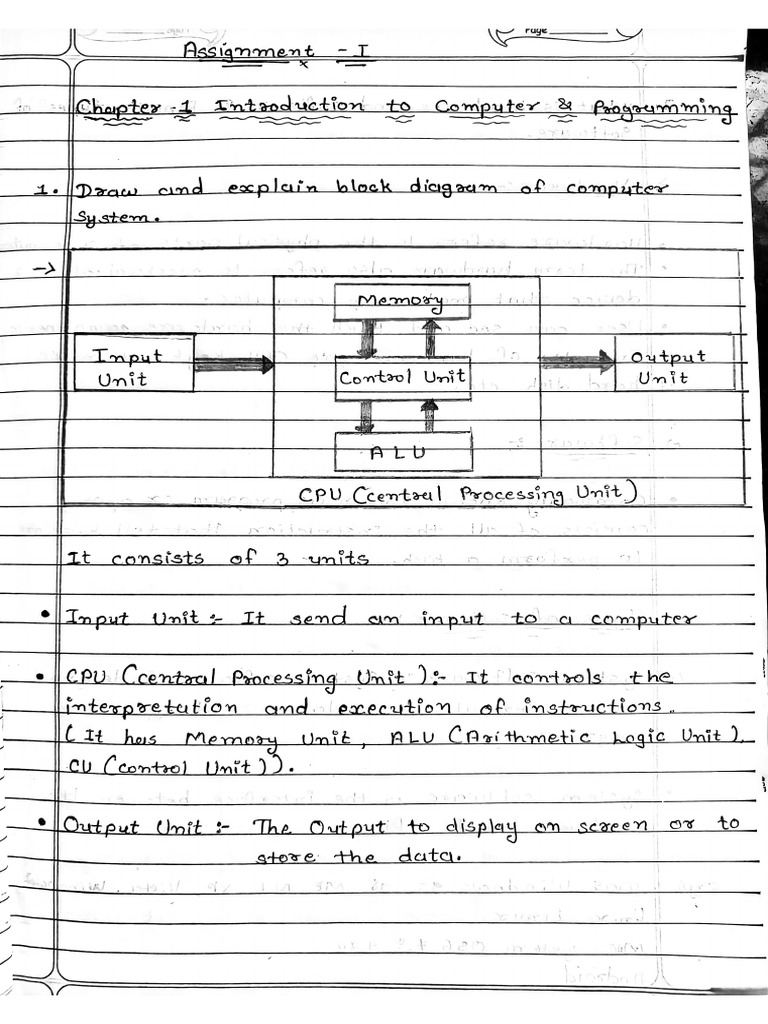 Page
Assignment - I
Chapter-1 Introduction to Computer & Programming
1. Draw and explain block diagram of computer
system.
→
Memory
Input
Unit
Control Unit
Output
Unit
ALU
CPU (Central Processing Unit)
It consists of 3 units
• Input Unit :- It send an input to a computer
• CPU (Central Processing Unit) :- It controls the
interpretation and execution of instructions.
(It has Memory Unit, ALU (Arithmetic Logic Unit),
CU (Control Unit)).
• Output Unit :- The Output to display on screen or to
store the data.